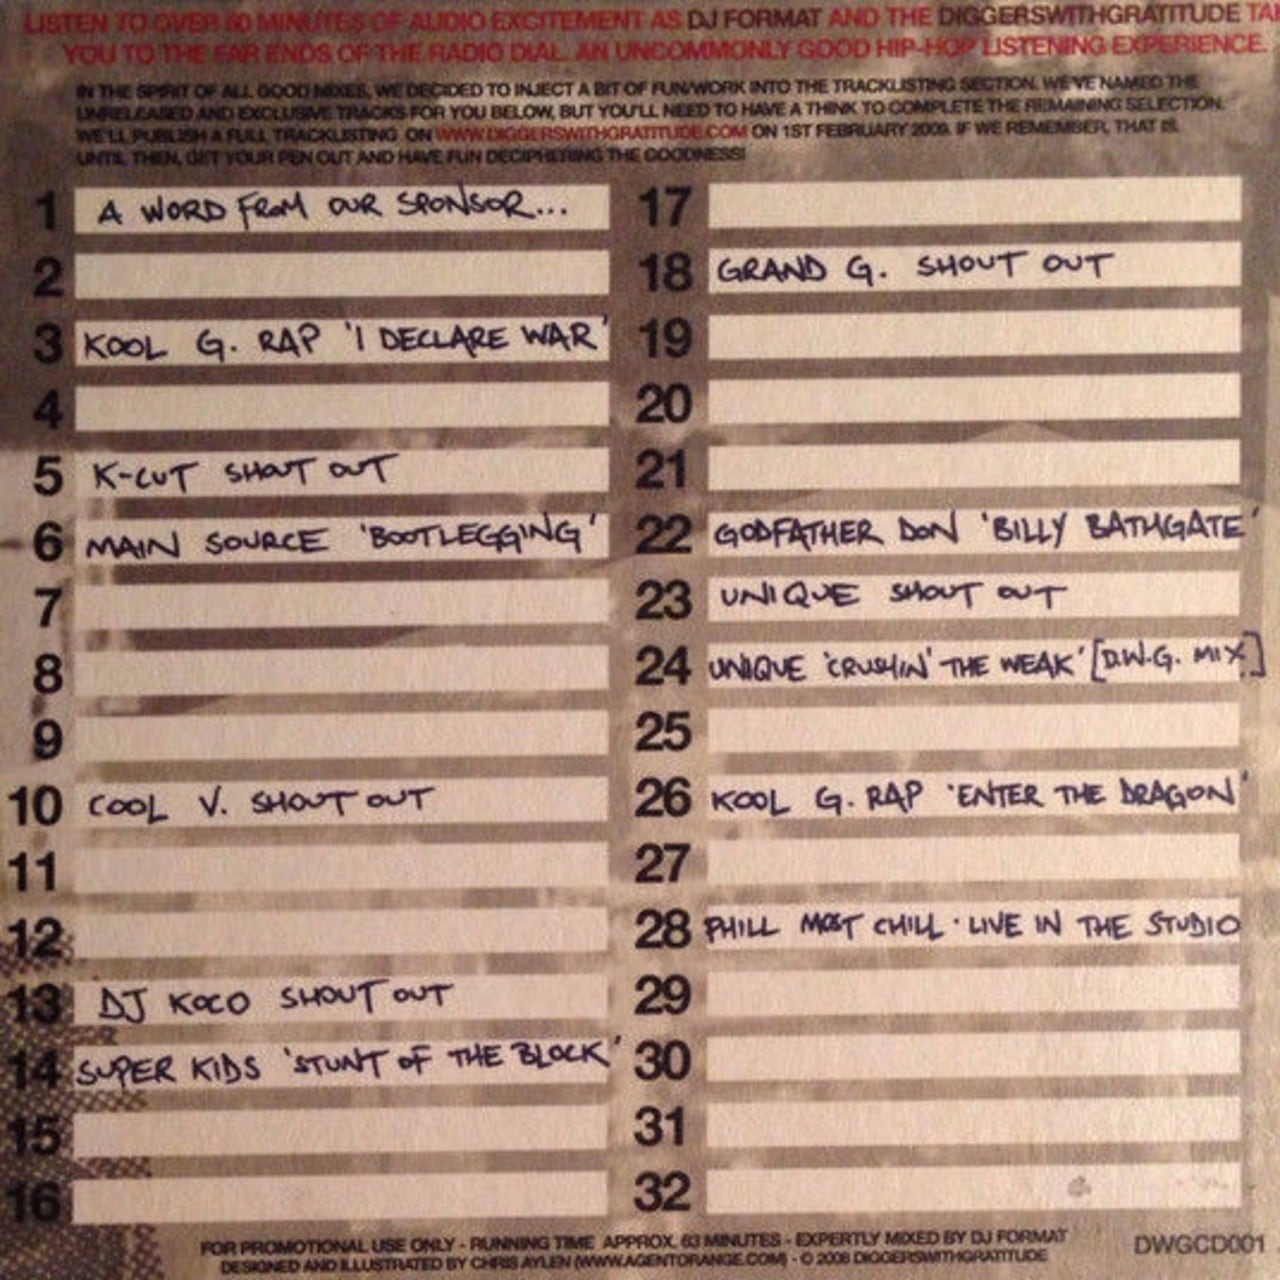 LISTEN TO OVER 60 MINUTES OF AUDIO EXCITEMENT AS DJ FORMAT AND THE DIGGERSWITHGRATITUDE TA
YOU TO THE FAR ENDS OF THE RADIO DIAL. AN UNCOMMONLY GOOD HIP-HOP LISTENING EXPERIENCE.
IN THE SPIRIT OF ALL GOOD MIXES, WE DECIDED TO INJECT A BIT OF FUN/WORK INTO THE TRACKLISTING SECTION. WE'VE NAMED THE
UNRELEASED AND EXCLUSIVE TRACKS FOR YOU BELOW, BUT YOU'LL NEED TO HAVE A THINK TO COMPLETE THE REMAINING SELECTION.
WE'LL PUBLISH A FULL TRACKLISTING ON WWW.DIGGERSWITHGRATITUDE.COM ON 1ST FEBRUARY 2009. IF WE REMEMBER, THAT IS.
UNTIL THEN, GET YOUR PEN OUT AND HAVE FUN DECIPHERING THE GOODNESS!
1 A WORD FROM OUR SPONSOR...
2
3 KOOL G. RAP 'I DECLARE WAR'
4
5 K-CUT SHOUT OUT
6 MAIN SOURCE 'BOOTLEGGING'
7
8
9
10 COOL V. SHOUT OUT
11
12
13 DJ KOCO SHOUT OUT
14 SUPER KIDS 'STUNT OF THE BLOCK'
15
16
17
18 GRAND G. SHOUT OUT
19
20
21
22 GODFATHER DON 'BILLY BATHGATE'
23 UNIQUE SHOUT OUT
24 UNIQUE 'CRUSHIN' THE WEAK' [D.W.G. MIX]
25
26 KOOL G. RAP 'ENTER THE DRAGON'
27
28 PHILL MOST CHILL · LIVE IN THE STUDIO
29
30
31
32
FOR PROMOTIONAL USE ONLY - RUNNING TIME APPROX. 63 MINUTES - EXPERTLY MIXED BY DJ FORMAT
DESIGNED AND ILLUSTRATED BY CHRIS AYLEN (WWW.AGENTORANGE.COM) - © 2008 DIGGERSWITHGRATITUDE
DWGCD001